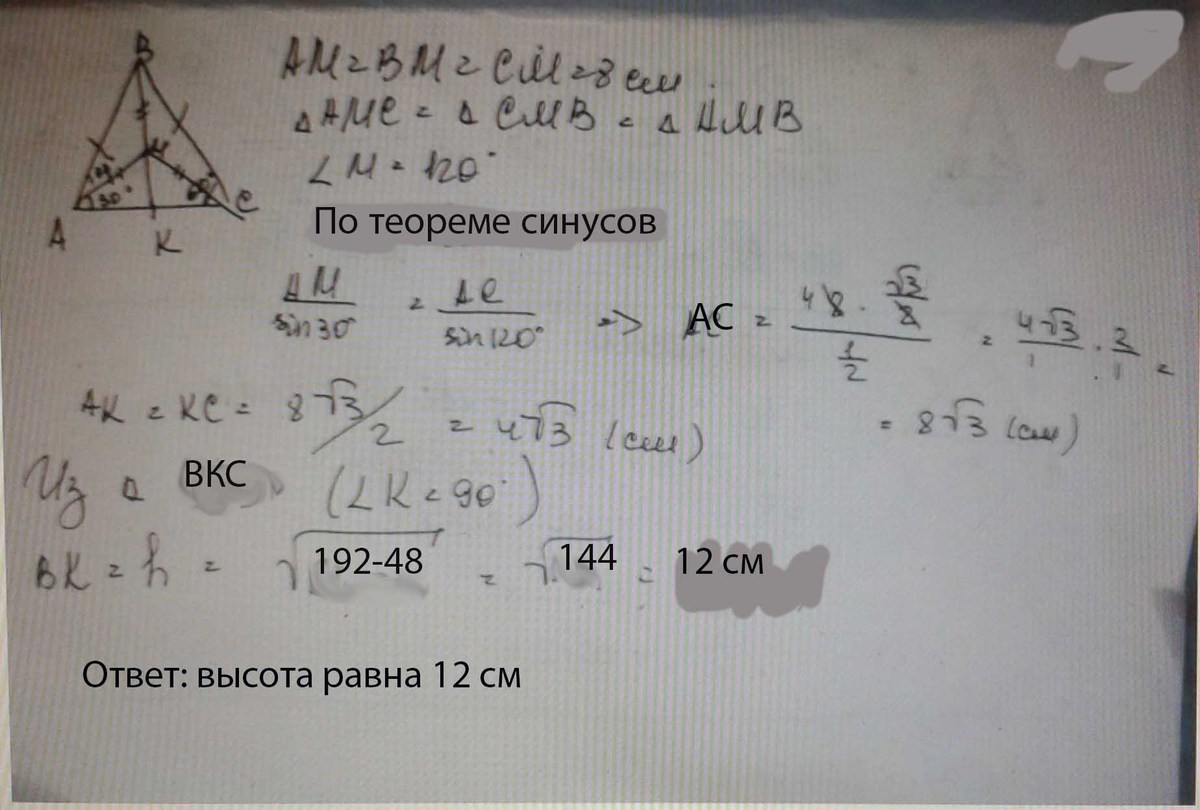 B
M
30°
A
K
C
AM = BM = CM = 8 см
△ AMC = △ CMB = △ AMB
∠ M = 120°
По теореме синусов
AM / sin30° = AC / sin120° => AC = (48 · √3/2) / (1/2) = 4√3/1 · 2/1 =
= 8√3 (см)
AK = KC = 8√3/2 = 4√3 (см)
Из △ ВКС (∠K = 90°)
BK = h = √192-48 = √144 = 12 см
Ответ: высота равна 12 см